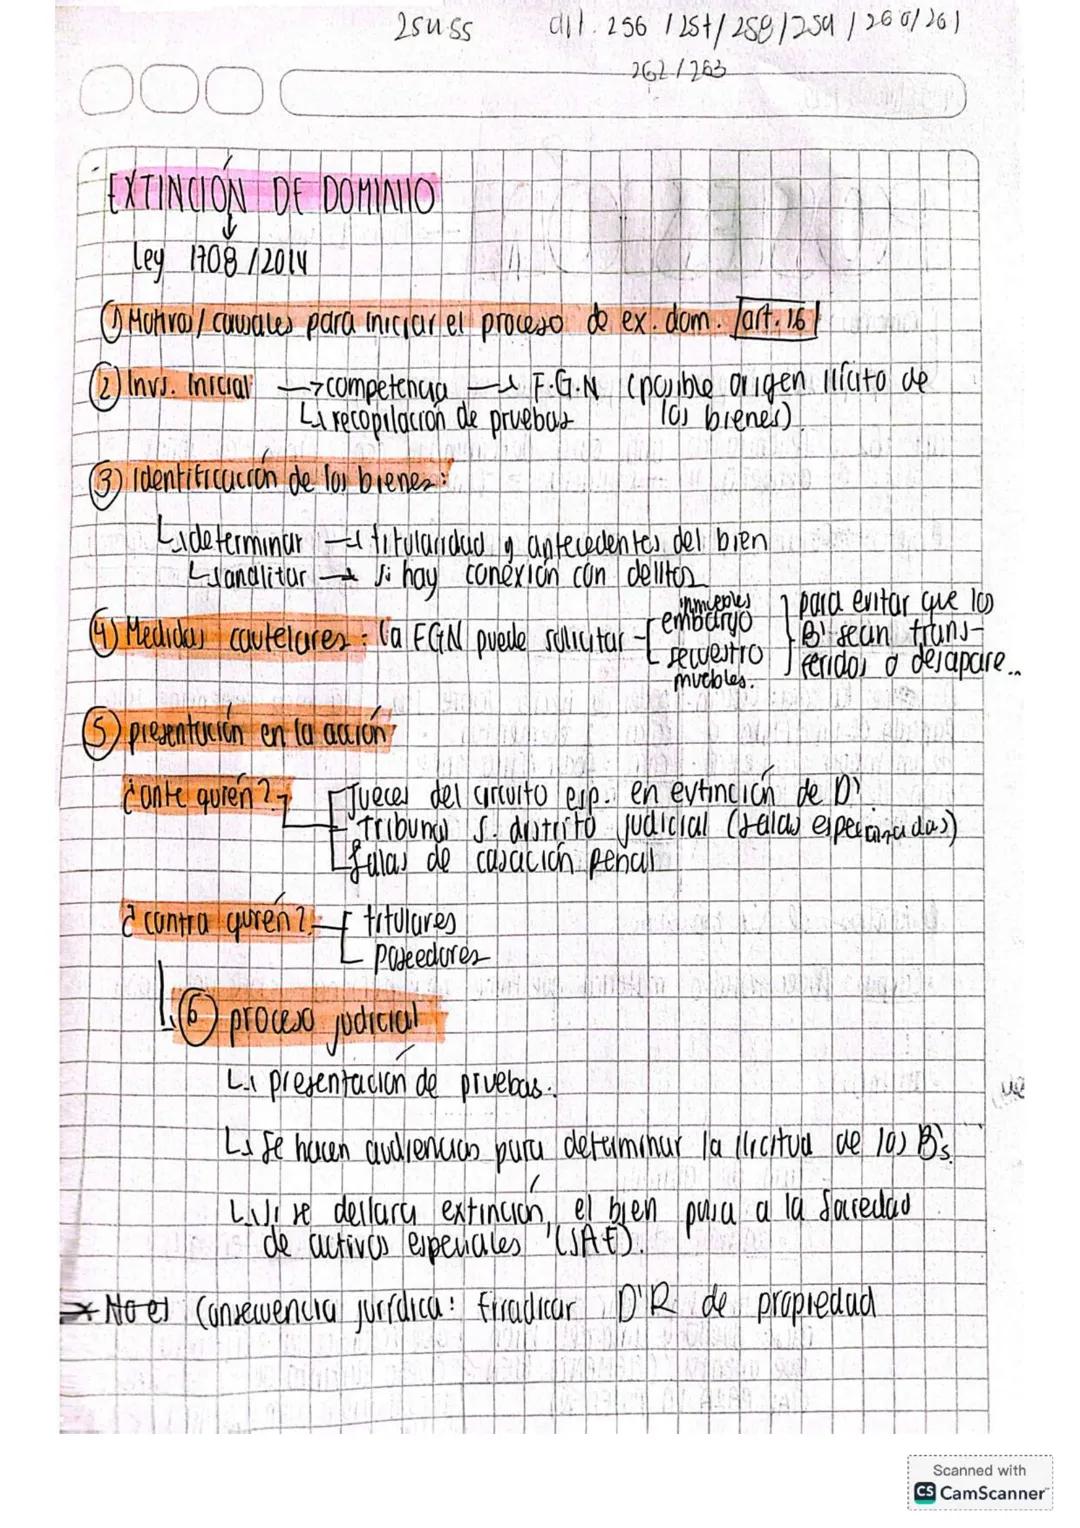 art. 256 / 257 / 258 / 259 / 260 / 261
262 / 263
EXTINCIÓN DE DOMINIO
Ley 1708 / 2014
① Motivos / causales para iniciar el proceso de ex. dom. art. 16
② Invs. Inicial → competencia → F.G.N (posible origen ilícito de
↳ recopilación de pruebas los bienes)
③ Identificación de los bienes:
↳ determinar → titularidad y antecedentes del bien
↳ analitar → si hay conexión con delitos
④ Medidas cautelares: la FGN puede solicitar
inmuebles
embargo
secuestro
muebles.
para evitar que los
B' sean trans-
feridos o desapare..
⑤ presentación en la acción
¿ante quién?
Jueces del circuito esp. en extinción de D'
Tribunal S. distrito judicial (salas especializadas)
Salas de casación penal
¿contra quién?
titulares
poseedores
⑥ proceso judicial
↳ presentación de pruebas.
↳ Se hacen audiencias para determinar la ilicitud de los B's.
↳ Si se declara extinción, el bien pasa a la Sociedad
de activos especiales (SAE).
No es Consecuencia jurídica: Erradicar D'R de propiedad
Scanned with
CS CamScanner